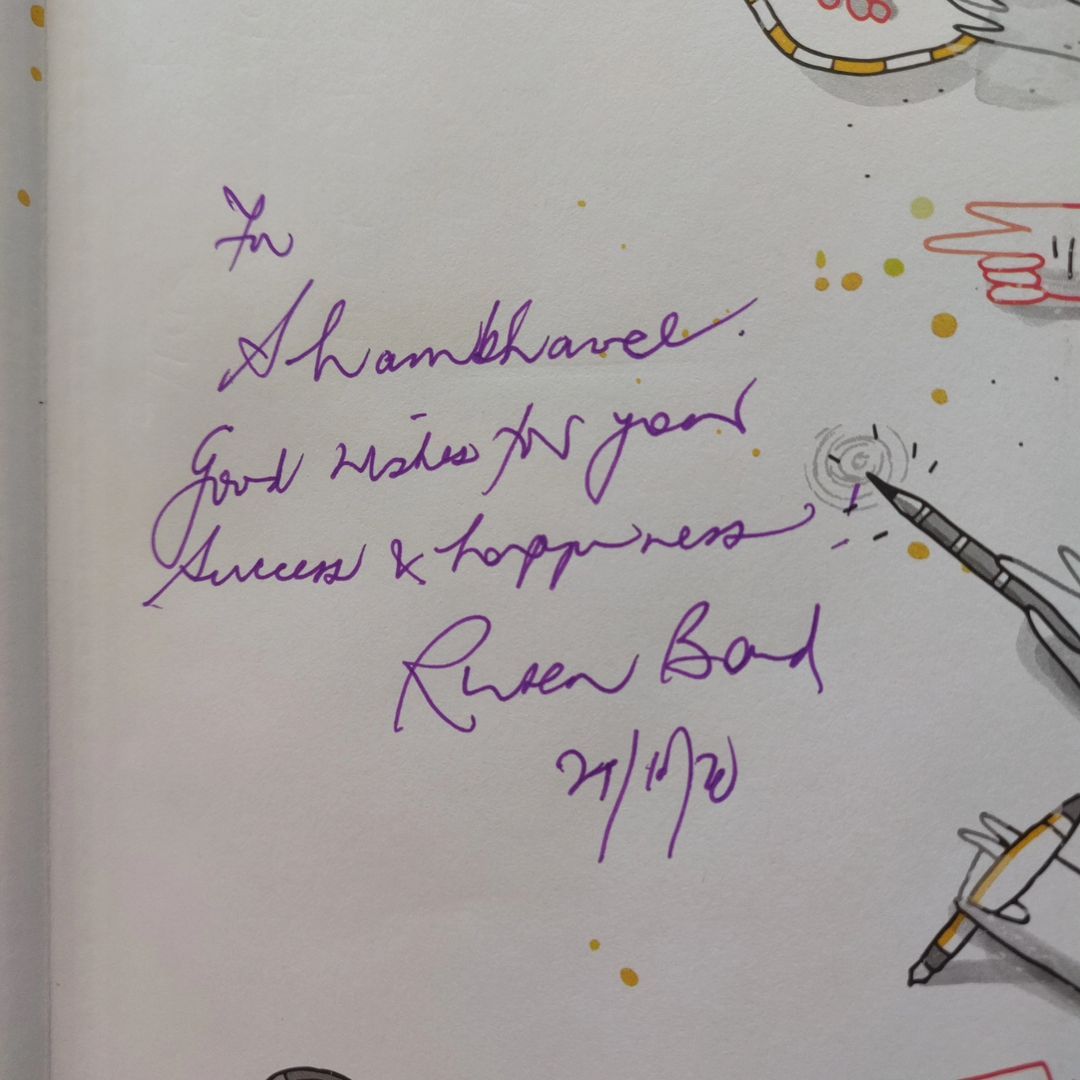 For
Shambhavee.
Good wishes for your
success & happiness!
Ruskin Bond